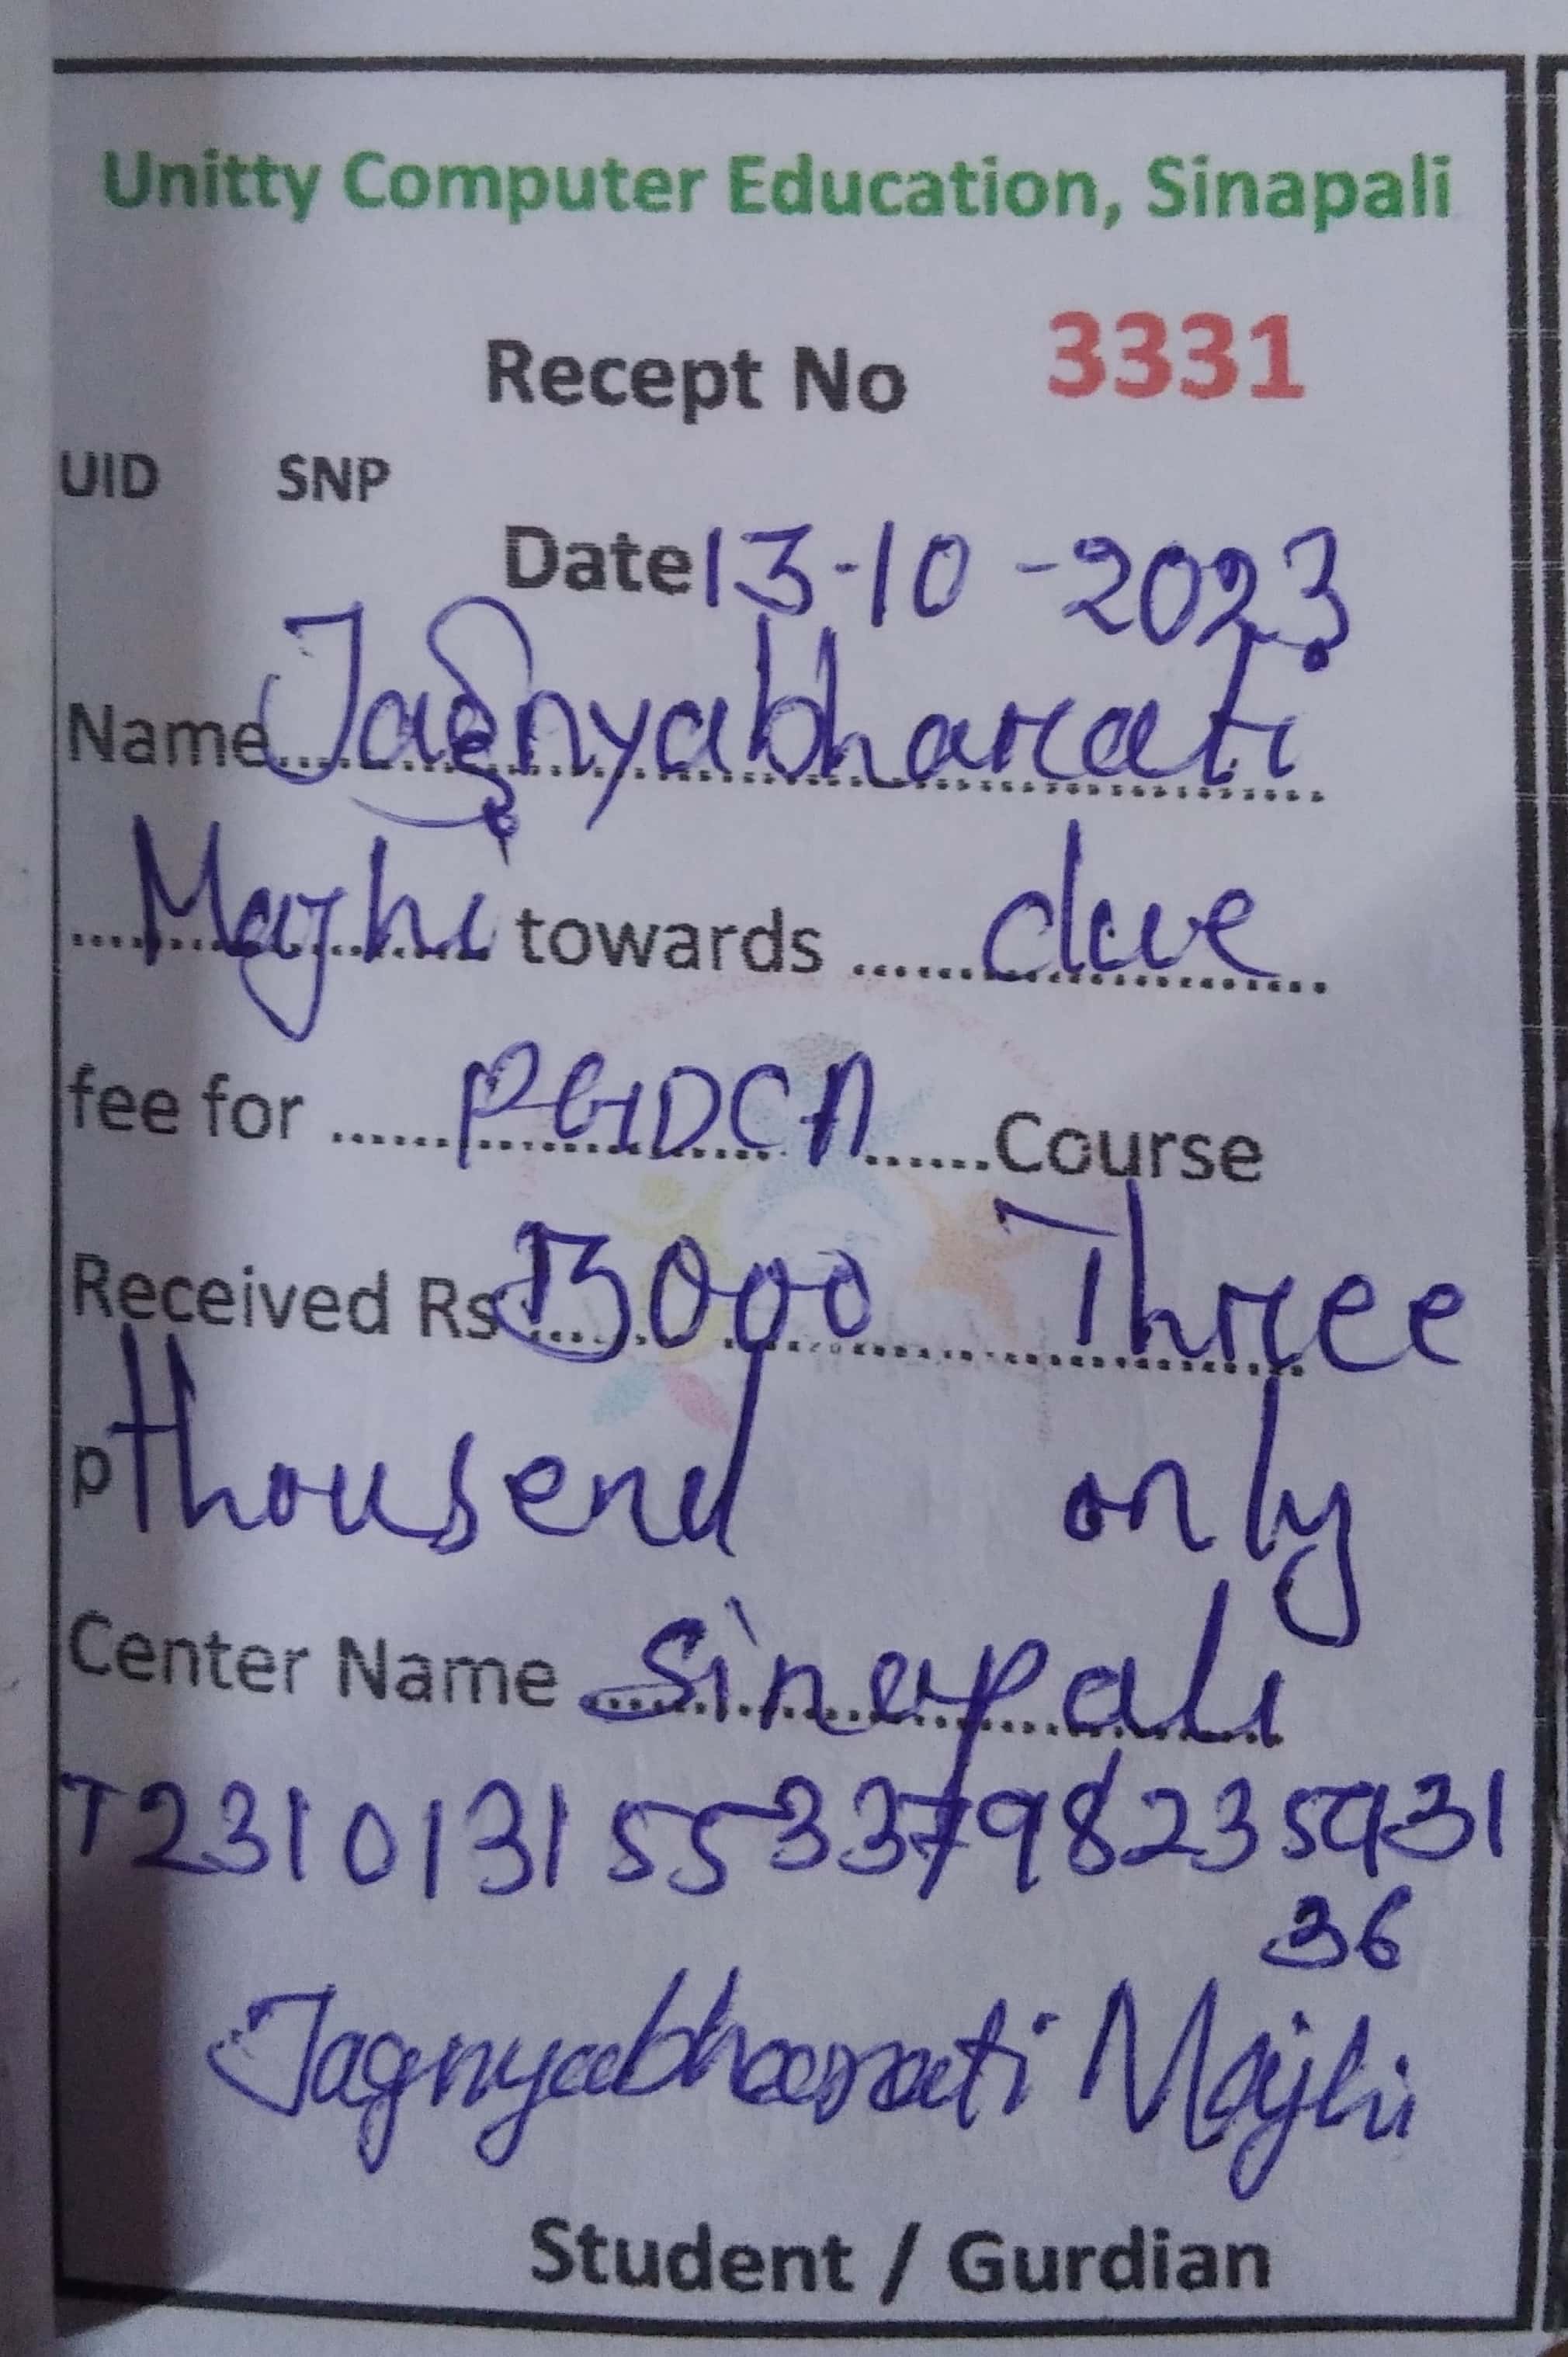 Unitty Computer Education, Sinapali
Recept No 3331
UID SNP
Date 13-10-2023
Name Jagnyabharati
Majhi towards due
fee for PGDCA Course
Received Rs 3000 Three
p thousend only
Center Name Sinapali
T23101315533798235931
36
Jagnyabharati Majhi
Student / Gurdian